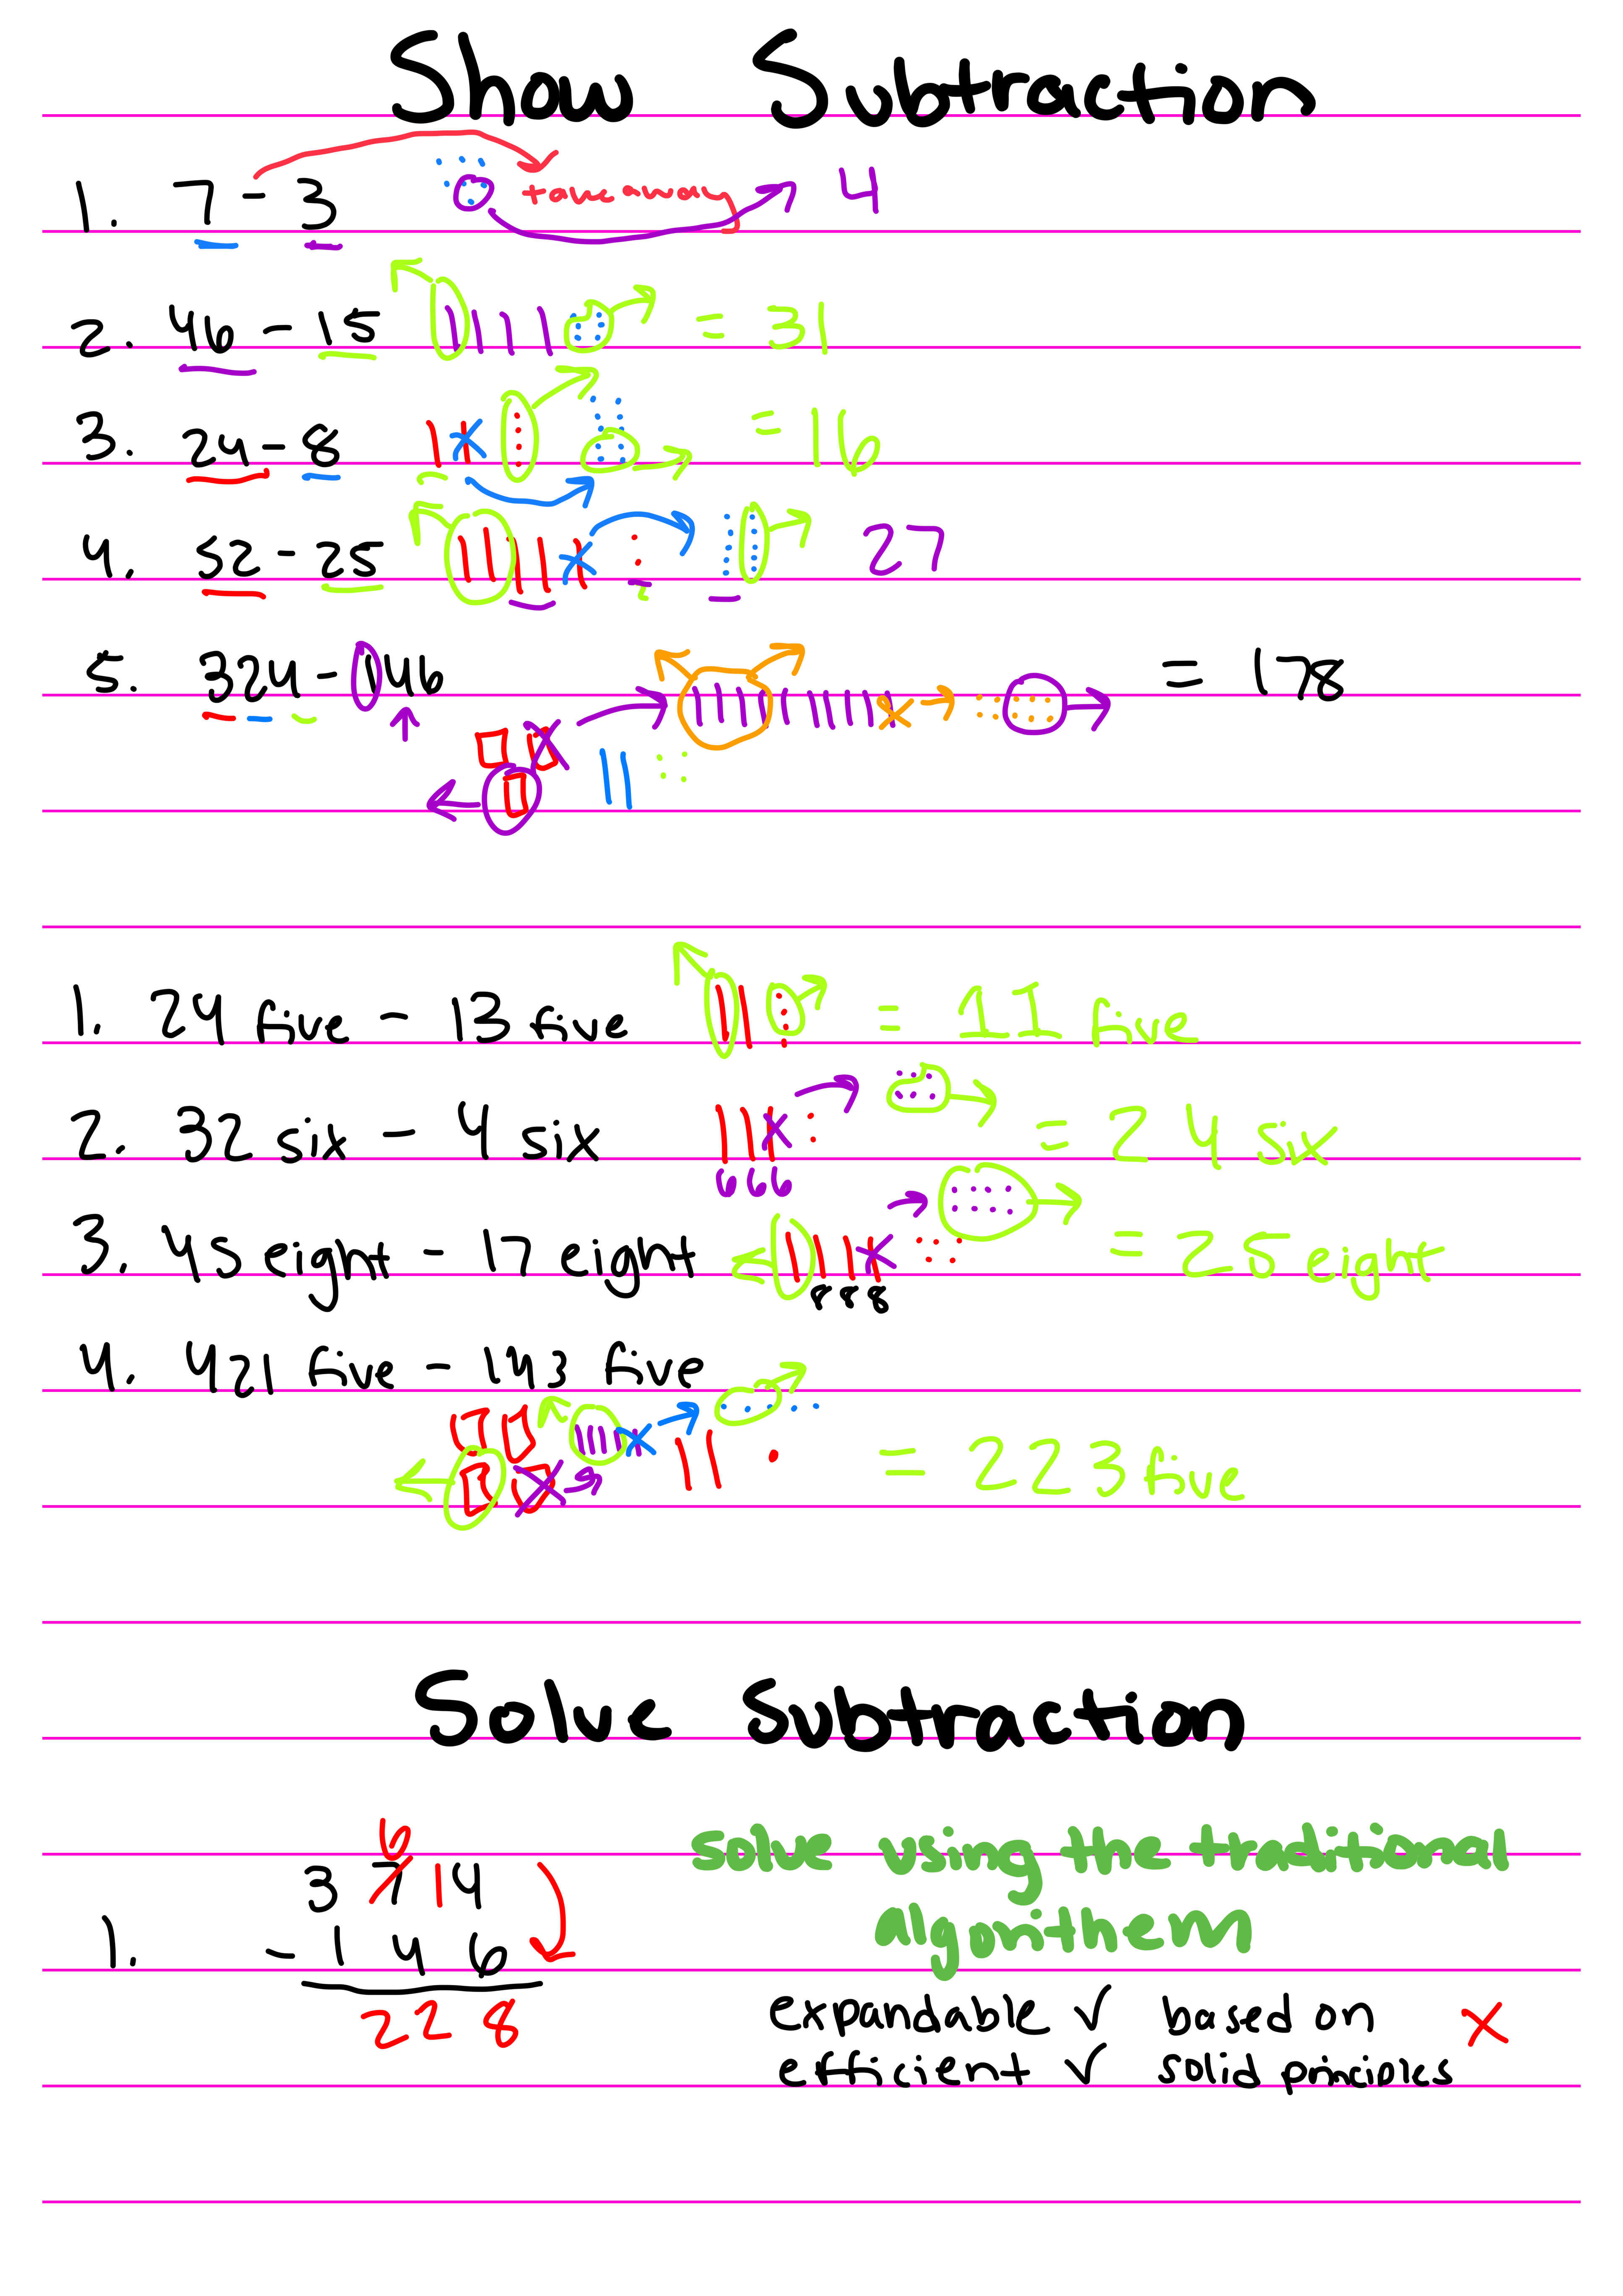 Show Subtraction
1. 7 - 3 take away 4
2. 46 - 15 = 31
3. 24 - 8 = 16
4. 52 - 25 27
5. 324 - 146 = 178
1. 24 five - 13 five = 11 five
2. 32 six - 4 six = 24 six
666
3. 45 eight - 17 eight = 25 eight
888
4. 421 five - 143 five
= 223 five
Solve Subtraction
6
3 7 14
1. - 1 4 6
2 2 8
solve using the traditional
algorithem
expandable ✓ based on
efficient ✓ solid principles X